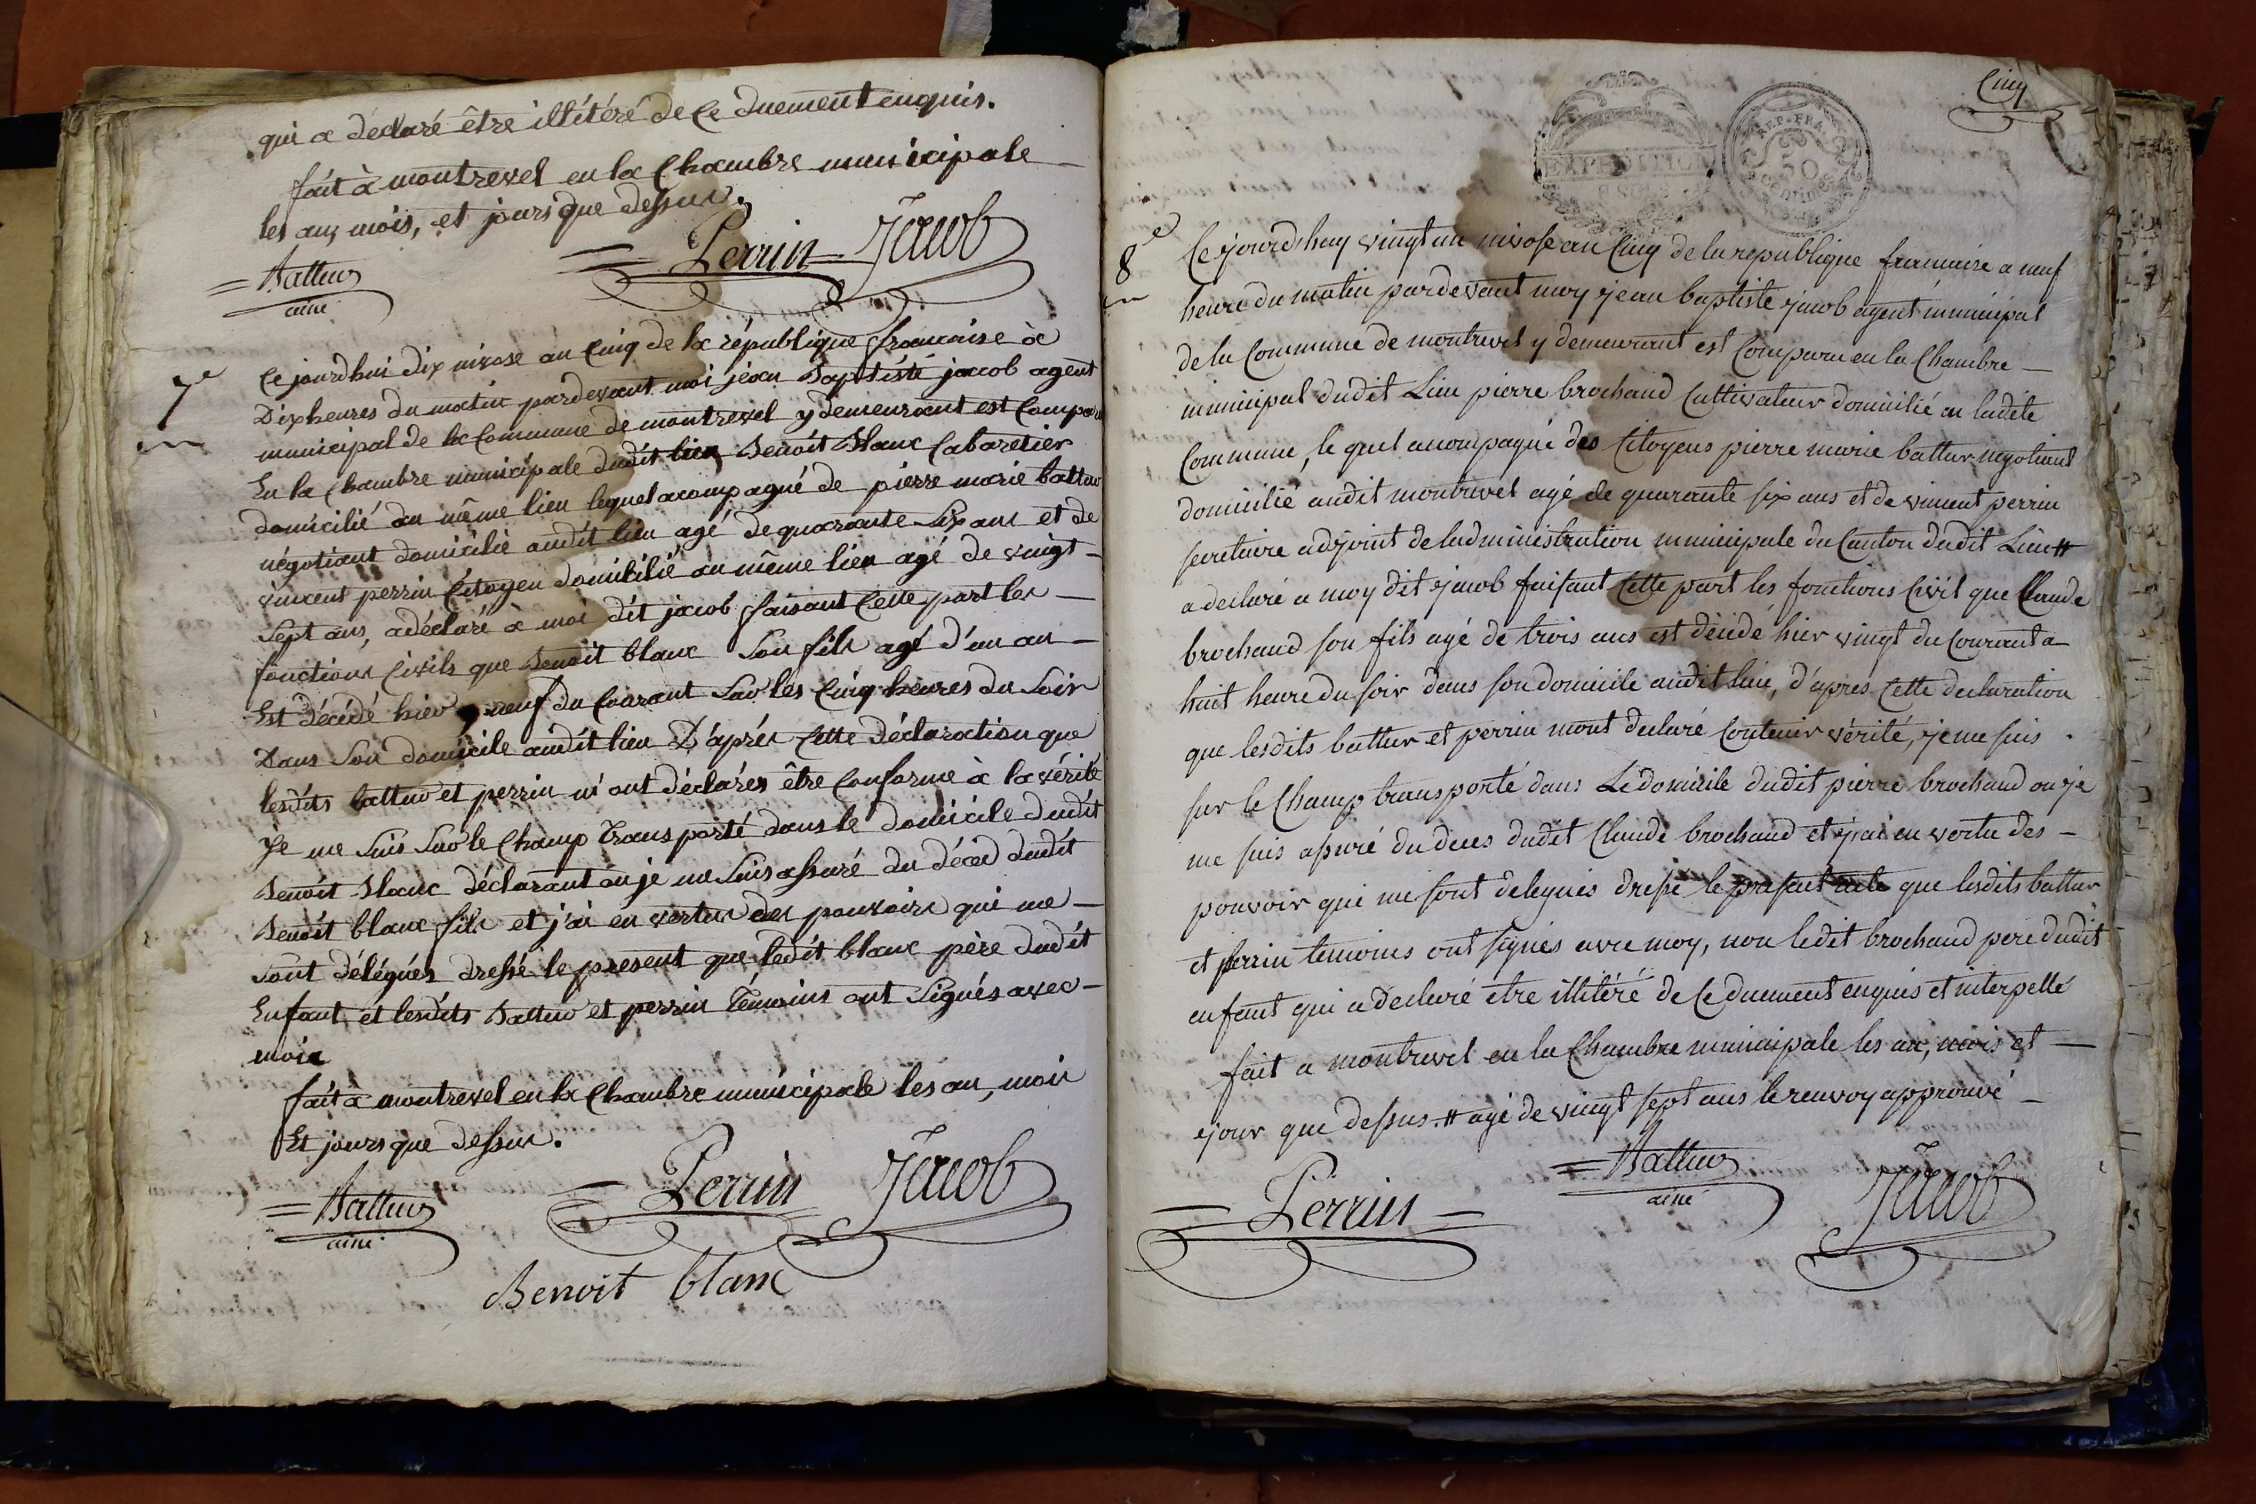 qui a déclaré être illitéré de ce duement enquis.
fait à montrevel en la Chambre municipale
les an, mois, et jours que dessus.
Perrin Jacob
Battur
ainé
7e
Ce jourdhui dix nivose an Cinq de la république francaise à
Dix heures du matin pardevant moi jéan Baptiste jacob agent
municipal de la Commune de montrevel y demeurant est Comparu
En la Chambre municipale dudit lieu Benoit Blanc Cabaretier
domicilié au même lieu lequel acompagné de pierre marie battur
négotiant domicilié audit lieu agé de quarante Six ans et de
vincent perrin Citoyen domicilié au même lieu agé de vingt
Sept ans, a déclaré à moi dit jacob faisant Cette part les
fonctions Civils que Benoit blanc Son fils agé d'un an
Est décédé hier neuf du Courant Sur les Cinq heures du Soir
Dans Son domicile audit lieu D'aprés Cette déclaration que
lesdits battur et perrin m'ont déclarés être Conforme à la vérité
Je me Suis Sur le Champ Transporté dans le domicile dudit
Benoit Blanc déclarant où je me Suis assuré du décéd dudit
Benoit blanc fils et j'ai en vertus des pouvoirs qui me
sont délégués dressé le present que ledit blanc père dudit
Enfant et lesdits Battur et perrin Témoins ont Signés avec
moi
fait à montrevel en la Chambre municipale les an, mois
Et jours que dessus.
Battur
ainé
Perrin Jacob
Benoit blanc
Cinq
EXPEDITION
REP. FRA.
50
centimes
8e
Ce jourdhuy vingt un nivose an Cinq de la republique francaise a neuf
heure du matin pardevant moy jean baptiste jacob agent municipal
de la Commune de montrevel y demeurant est Comparu en la Chambre
municipal dudit Lieu pierre brochand Cultivateur domicilié en ladite
Commune, le quel acompagné des Citoyens pierre marie battur negotiant
domicilié audit montrevel agé de quarante six ans et de vincent perrin
secretaire adjoint de ladministration municipale du Canton dudit Lieu #
a declaré a moy dit jacob faisant Cette part les fonctions Civil que Claude
brochand son fils agé de trois ans est décédé hier vingt du Courant a
huit heure du soir dans son domicile audit lieu, d'apres Cette declaration
que lesdits battur et perrin mont declaré Contenir vérité, je me suis
sur le Champ transporté dans Le domicile dudit pierre brochand ou je
me suis assuré du deces dudit Claude brochand et j'ai en vertu des
pouvoir qui me sont delegués dressé le present acte que lesdits battur
et perrin temoins ont signés avec moy, non ledit brochand pere dudit
enfant qui a declaré etre illitéré de Ce duement enquis et interpellé
fait a montrevel en la Chambre municipale les an, mois et
jour que dessus. # agé de vingt sept ans le renvoy approuvé
Perrin
Battur
ainé
Jacob